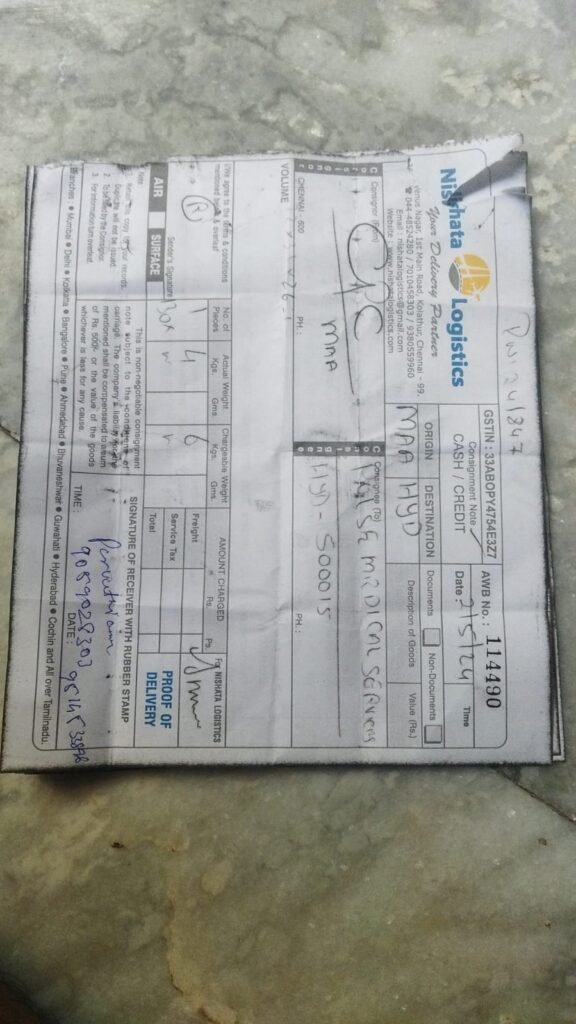 PN1241847
Nishata Logistics
Your Delivery Partner
Venus Nagar, 1st Main Road, Kolathur, Chennai - 99.
044-48524280 / 7010458303 / 9380559960
Email : nishatalogistics@gmail.com
Website : www.nishatalogistics.com
GSTIN : 33ABOPY4754E3Z7
Consignment Note
CASH / CREDIT
AWB No. : 114490
Date : 2/5/24
Time
ORIGIN
DESTINATION
MAA
HYD
Documents
Non-Documents
Description of Goods
Value (Rs.)
Consignor (From)
CPC
MAA
CHENNAI - 600
PH. :
Consignee (To)
PULSE MEDICAL SERVICES
HYD - 500015
PH. :
VOLUME
I/We agree to the terms & conditions
mentioned below & overleaf
Sender's Signature
AIR
SURFACE
No. of
Pieces
Actual Weight
Kgs. Gms.
Chargeable Weight
Kgs. Gms.
1
4
6
Box
AMOUNT CHARGED
Rs. Ps.
Freight
Service Tax
Total
For NISHATA LOGISTICS
PROOF OF
DELIVERY
Note :
1. Retain this copy for your records.
Duplicate will not be issued.
2. To be filled by the Consignor.
3. For information turn overleaf.
This is non-negotiable consignment
note subject to the conditions of
carriage. The company's liability for the
mentioned shall be compensated to a sum
of Rs. 500/- or the value of the goods
whichever is less for any cause.
SIGNATURE OF RECEIVER WITH RUBBER STAMP
9059028303
TIME :
DATE :
Branches : Mumbai Delhi Kolkatta Bangalore Pune Ahmedabad Bhuvaneshwar Guwahati Hyderabad Cochin and All over Tamilnadu.